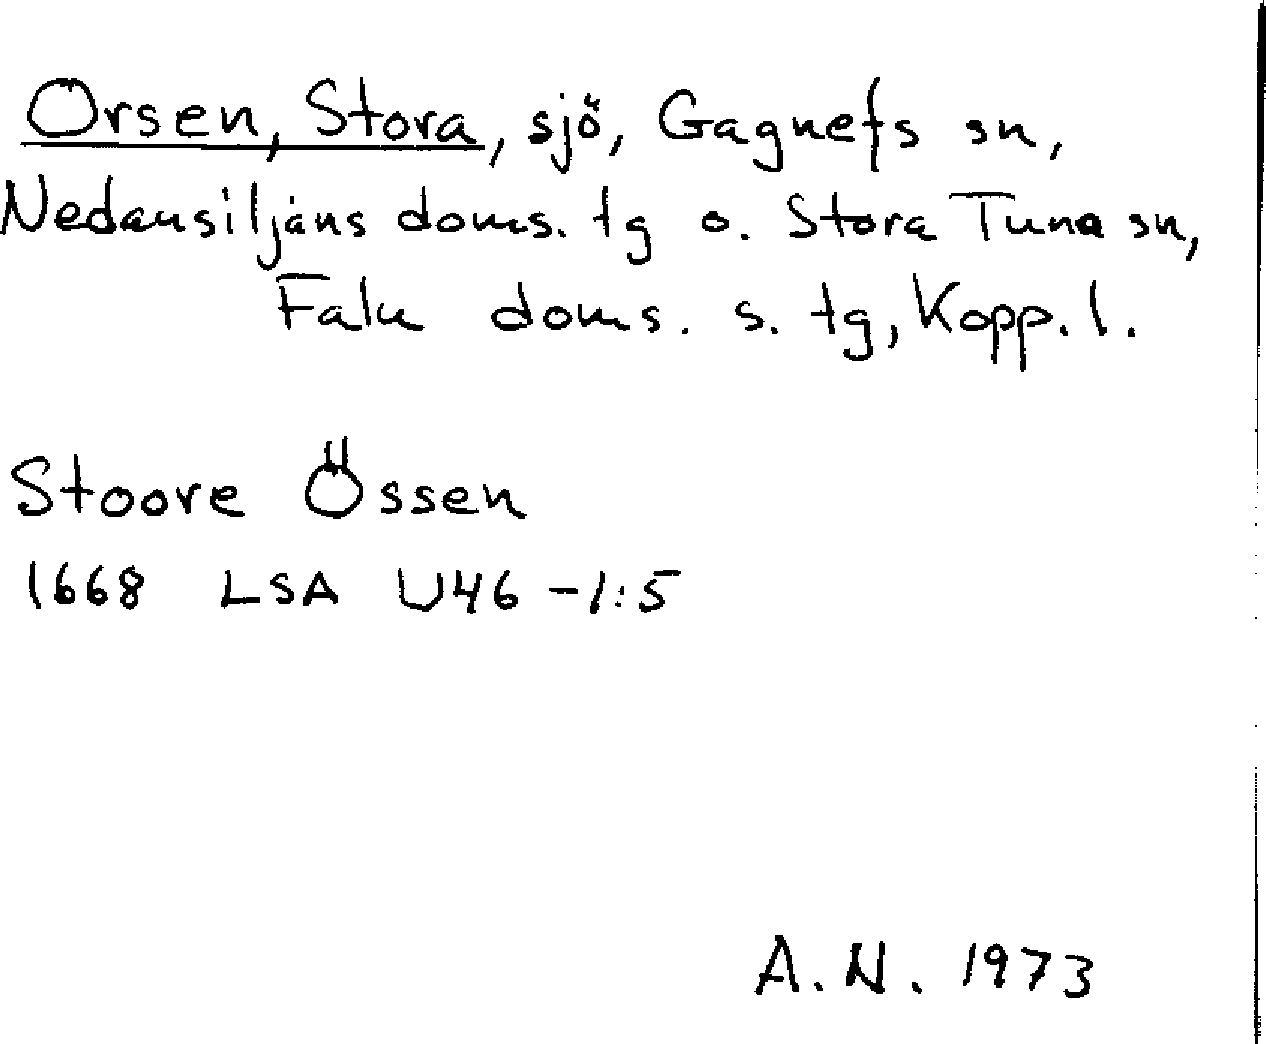 Orsen, Stora, sjö, Gagnefs sn,
Nedansiljans doms. tg o. Stora Tuna sn,
Falu doms. s. tg, Kopp. l.
Stoore Össen
1668 LSA U46-1:5
A.N. 1973